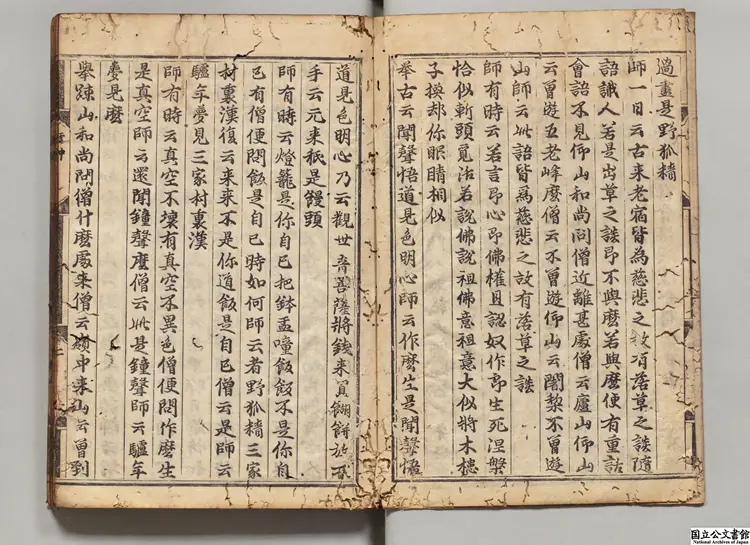 過盡是野狐精
師一日云古来老宿皆為慈悲之故有落草之談隨
語識人若是出草之談即不與麽若與麽便有重話
會語不見仰山和尚問僧近離甚處僧云廬山仰山
云曾遊五老峰麽僧云不曾遊仰山云闍黎不曾遊
山師云此語皆為慈悲之故有落草之談
師有時云若言即心即佛權且認奴作郎生死涅槃
恰似斬頭覓活若說佛說祖佛意祖意大似將木槵
子換却你眼睛相似
举古云聞聲悟道見色明心師云作麽生是聞聲悟
道見色明心乃云觀世音菩薩將錢来買餬餅放下
手云元来秖是饅頭
師有時云燈籠是你自己把鉢盂噇飯飯不是你自
己有僧便問飯是自己時如何師云者野狐精三家
村裏漢復云来来不是你道飯是自己僧云是師云
驢年夢見三家村裏漢
師有時云真空不壞有真空不異色僧便問作麽生
是真空師云還聞鐘聲麽僧云此是鐘聲師云驢年
夢見麽
舉踈山和尚問僧什麽處来僧云嶺中来山云曾到
国立公文書館
National Archives of Japan